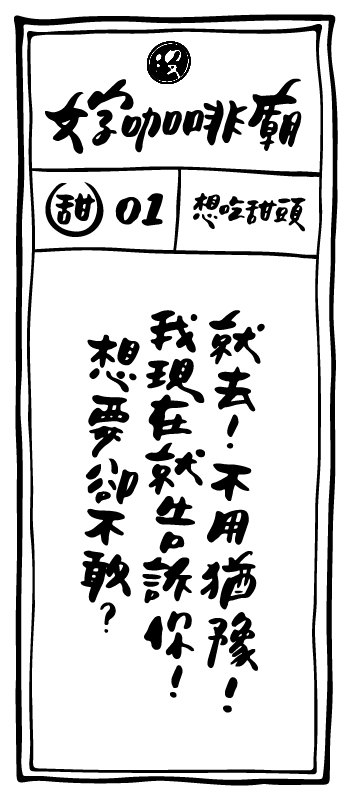 好咖啡廟
甜 01
想吃甜頭
想要卻不敢？
我現在就告訴你！
就去！不用猶豫！